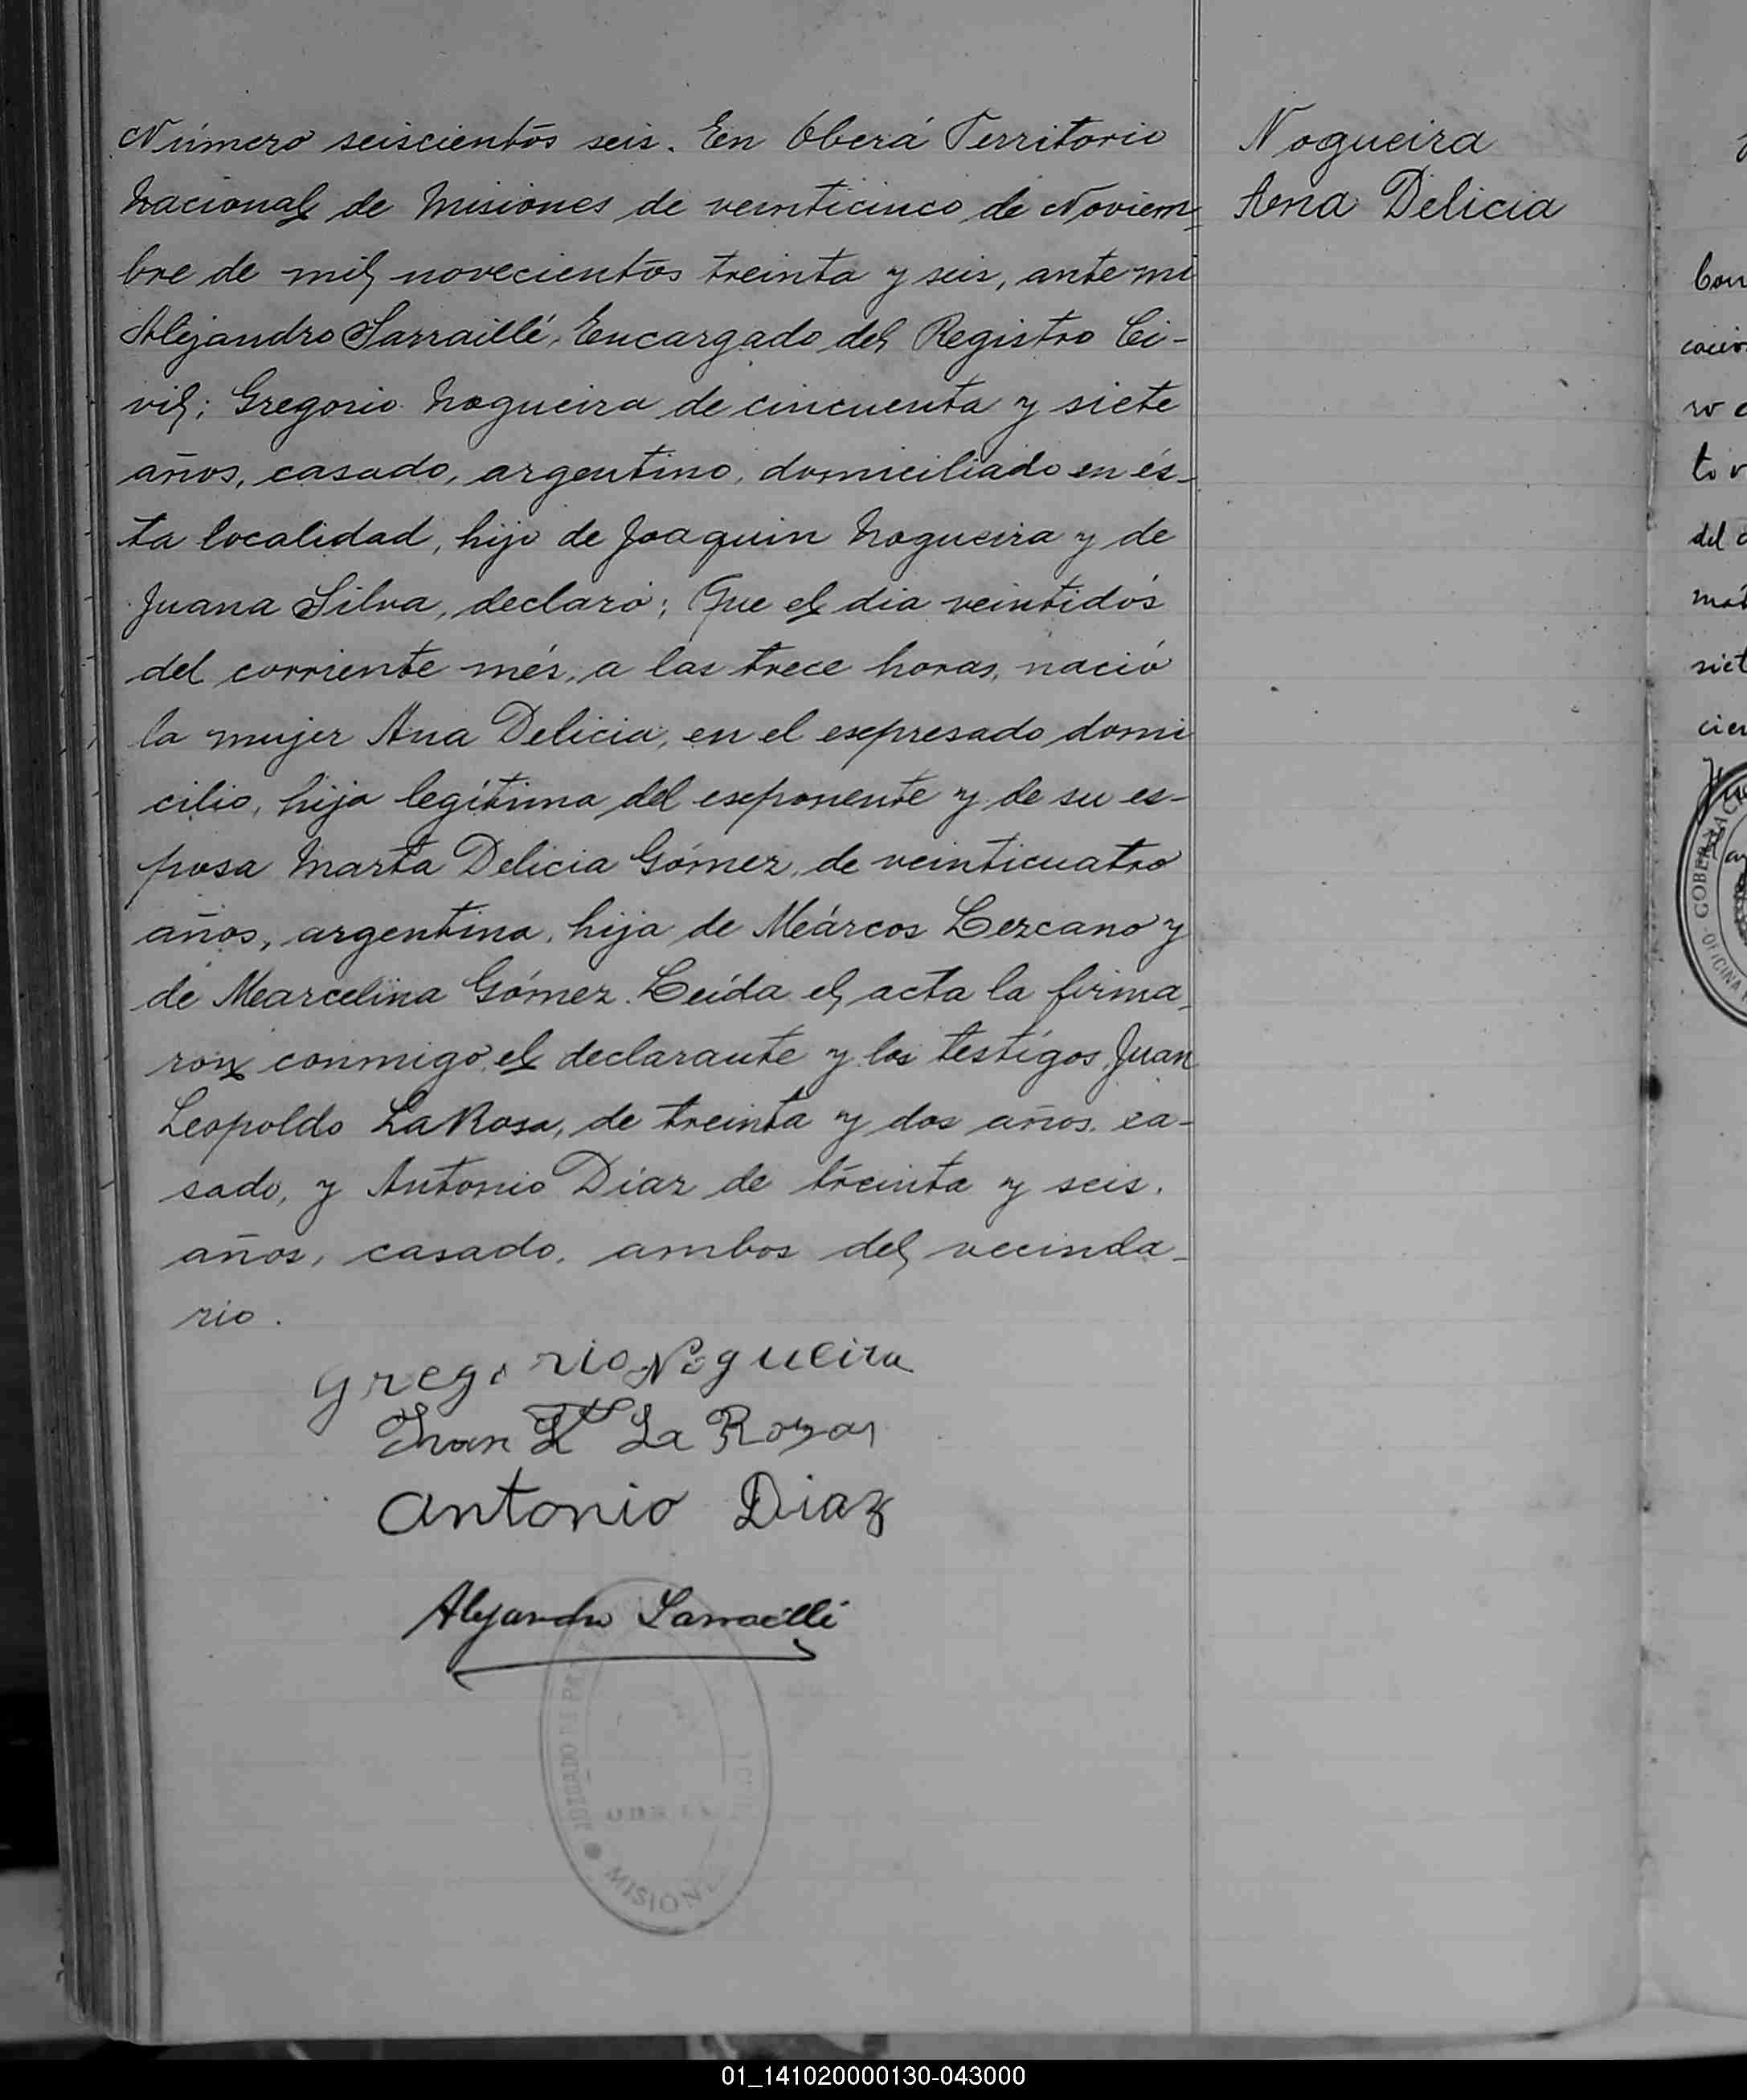 Número seiscientos seis. En Oberá Territorio
Nacional de Misiones de veinticinco de Noviem
bre de mil novecientos treinta y seis, ante mi
Alejandro Sarraillé, Encargado del Registro Ci-
vil; Gregorio Nogueira de cincuenta y siete
años, casado, argentino, domiciliado en és-
ta localidad, hijo de Joaquin Nogueira y de
Juana Silva, declaró; Que el dia veintidós
del corriente més, a las trece horas, nació
la mujer Ana Delicia, en el expresado domi
cilio, hija legítima del exponente y de su es-
posa Marta Delicia Gómez, de veinticuatro
años, argentina, hija de Márcos Lezcano y
de Marcelina Gómez. Leída el acta la firma-
ron conmigo el declarante y los testígos Juan
Leopoldo LaRosa, de treinta y dos años, ca-
sado, y Antonio Díaz de treinta y seis.
años, casado, ambos del vecinda-
rio.
Gregorio Nogueira
Juan Ldo La Rosa
Antonio Diaz
Alejandro Sarraillé
JUZGADO DE PAZ
MISIONES
Nogueira
Ana Delicia
del
GOBERNACI
OFICINA
01_141020000130-043000